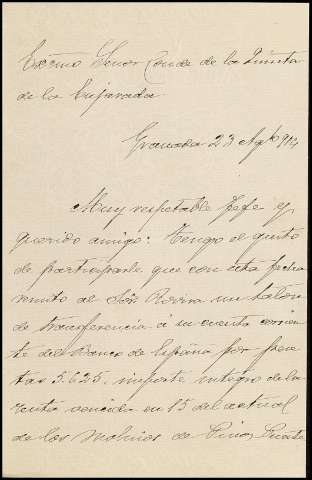 Exc̃mo Señor Conde de la Quinta
de la Enjarada
Granada 23 Agto 914
Muy respetable Jefe y
querido amigo: Tengo el gusto
de participarle que con esta fecha
remito al Sõr Rovira un talón
de transferencia á su cuenta corrien
te del Banco de España por pese
tas 5.625. importe integro de la
renta vencida en 15 del actual
de los Molinos de Pinos Puente